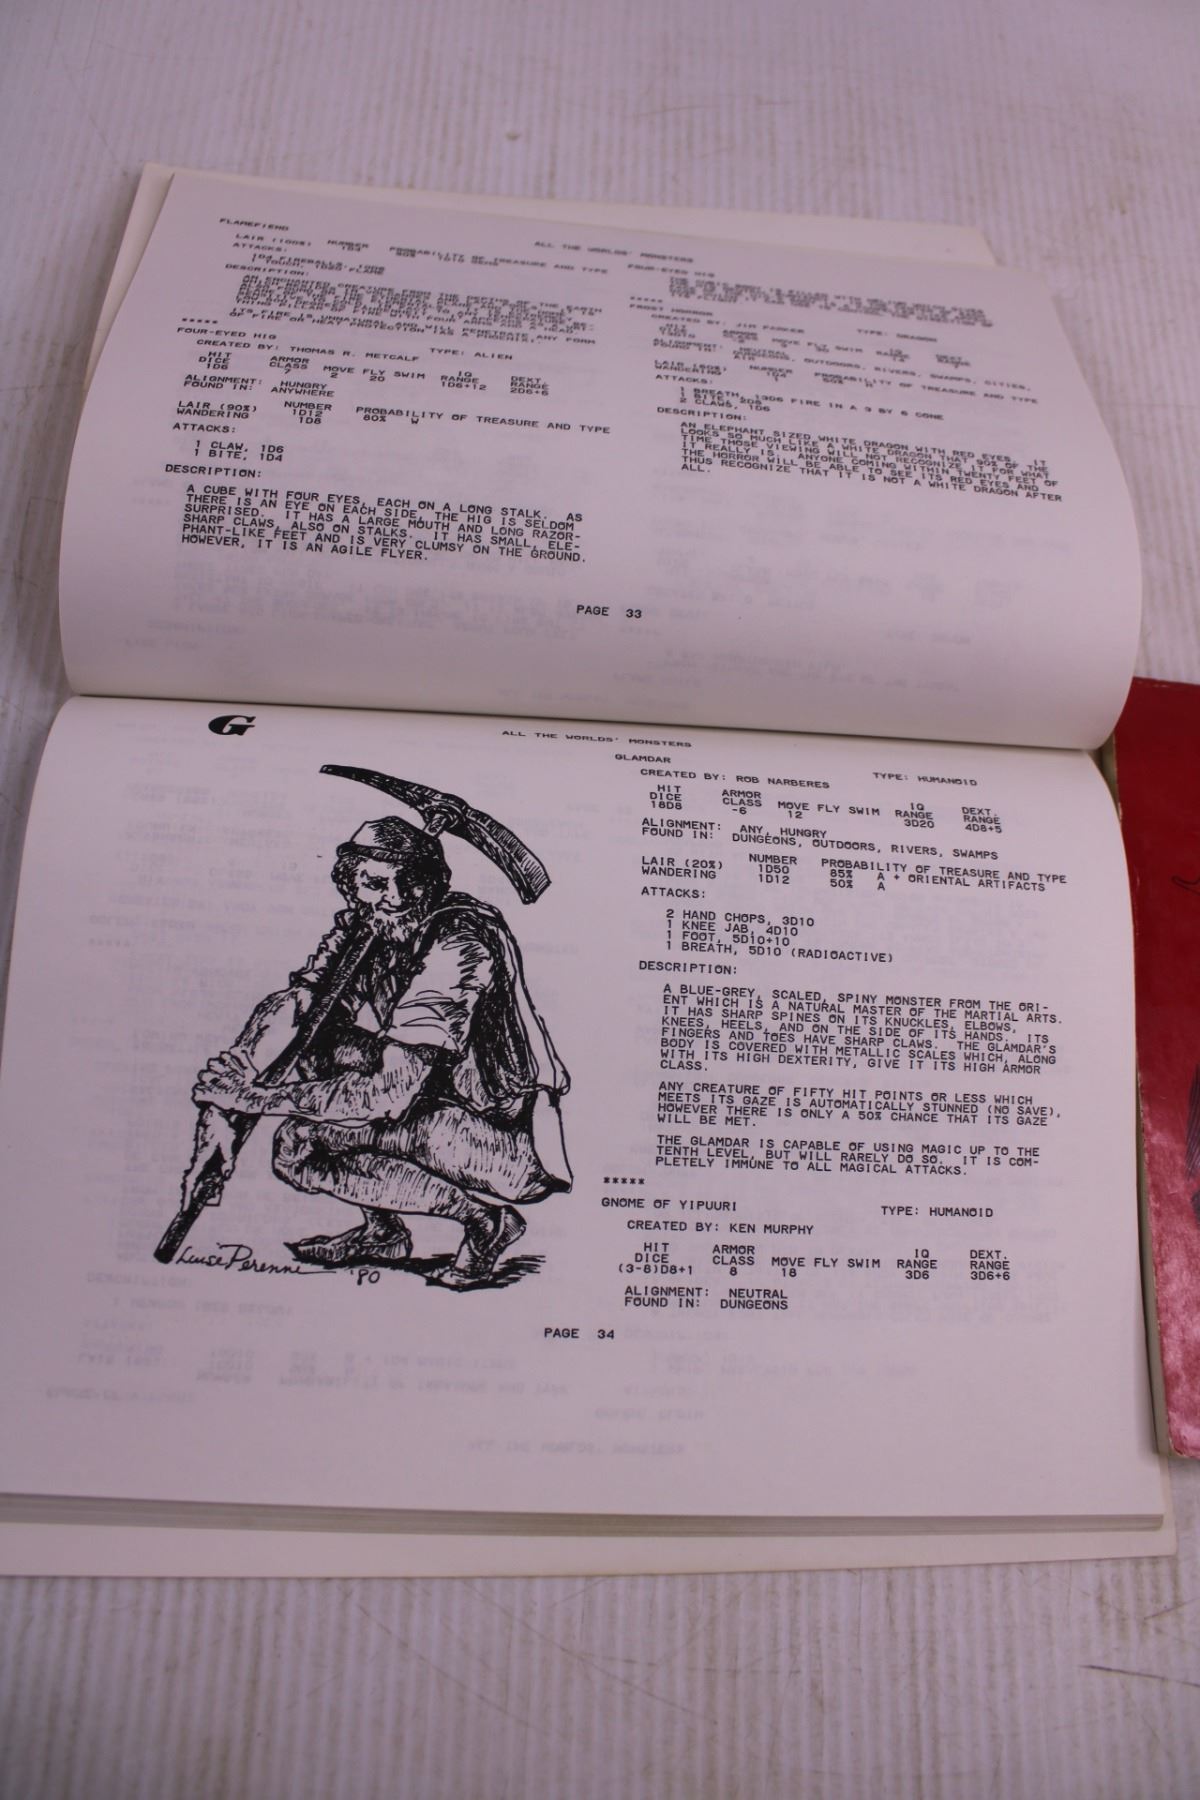 FLAMEFIEND
LAIR (100%) NUMBER PROBABILITY OF TREASURE AND TYPE
1D4 90%
ATTACKS:
1D4 FIREBALLS, 10D6
1 TOUCH, 1D20 FLAME
DESCRIPTION:
AN ENCHANTED CREATURE FROM THE DEPTHS OF THE EARTH
ITS FIRE IS UNNATURAL AND WILL PENETRATE ANY FORM
OF FIRE OR HEAT PROTECTION
*****
FOUR-EYED HIG
CREATED BY: THOMAS R. METCALF TYPE: ALIEN
HIT ARMOR IQ DEXT.
DICE CLASS MOVE FLY SWIM RANGE RANGE
1D6 7 2 20 1D6+12 2D6+6
ALIGNMENT: HUNGRY
FOUND IN: ANYWHERE
LAIR (90%) NUMBER PROBABILITY OF TREASURE AND TYPE
1D12 80% W
WANDERING 1D8
ATTACKS:
1 CLAW, 1D6
1 BITE, 1D4
DESCRIPTION:
A CUBE WITH FOUR EYES, EACH ON A LONG STALK. AS
THERE IS AN EYE ON EACH SIDE, THE HIG IS SELDOM
SURPRISED. IT HAS A LARGE MOUTH AND LONG RAZOR-
SHARP CLAWS, ALSO ON STALKS. IT HAS SMALL, ELE-
PHANT-LIKE FEET AND IS VERY CLUMSY ON THE GROUND.
HOWEVER, IT IS AN AGILE FLYER.
ALL THE WORLDS' MONSTERS
FOUR-EYED HIG
*****
FROST HORROR
CREATED BY: JIM PARKER TYPE: DRAGON
HIT ARMOR IQ DEXT.
DICE CLASS MOVE FLY SWIM RANGE RANGE
ALIGNMENT: NEUTRAL
FOUND IN: OUTDOORS, RIVERS, SWAMPS, CITIES,
LAIR (60%) NUMBER PROBABILITY OF TREASURE AND TYPE
WANDERING
ATTACKS:
1 BREATH, 13D6 FIRE IN A 9 BY 6 CONE
1 BITE, 2D8
2 CLAWS, 1D6
DESCRIPTION:
AN ELEPHANT SIZED WHITE DRAGON WITH RED EYES. IT
LOOKS SO MUCH LIKE A WHITE DRAGON THAT 90% OF THE
TIME THOSE VIEWING WILL NOT RECOGNIZE IT FOR WHAT
IT REALLY IS. ANYONE COMING WITHIN TWENTY FEET OF
THE HORROR WILL BE ABLE TO SEE ITS RED EYES AND
THUS RECOGNIZE THAT IT IS NOT A WHITE DRAGON AFTER
ALL.
PAGE 33
G
ALL THE WORLDS' MONSTERS
Luise Perenne '80
GLAMDAR
CREATED BY: ROB NARBERES TYPE: HUMANOID
HIT ARMOR IQ DEXT.
DICE CLASS MOVE FLY SWIM RANGE RANGE
18D8 -6 12 3D20 4D8+5
ALIGNMENT: ANY, HUNGRY
FOUND IN: DUNGEONS, OUTDOORS, RIVERS, SWAMPS
LAIR (20%) NUMBER PROBABILITY OF TREASURE AND TYPE
1D50 85% A + ORIENTAL ARTIFACTS
WANDERING 1D12 50% A
ATTACKS:
2 HAND CHOPS, 3D10
1 KNEE JAB, 4D10
1 FOOT, 5D10+10
1 BREATH, 5D10 (RADIOACTIVE)
DESCRIPTION:
A BLUE-GREY, SCALED, SPINY MONSTER FROM THE ORI-
ENT WHICH IS A NATURAL MASTER OF THE MARTIAL ARTS.
IT HAS SHARP SPINES ON ITS KNUCKLES, ELBOWS,
KNEES, HEELS, AND ON THE SIDE OF ITS HANDS. ITS
FINGERS AND TOES HAVE SHARP CLAWS. THE GLAMDAR'S
BODY IS COVERED WITH METALLIC SCALES WHICH, ALONG
WITH ITS HIGH DEXTERITY, GIVE IT ITS HIGH ARMOR
CLASS.
ANY CREATURE OF FIFTY HIT POINTS OR LESS WHICH
MEETS ITS GAZE IS AUTOMATICALLY STUNNED (NO SAVE),
HOWEVER THERE IS ONLY A 50% CHANCE THAT ITS GAZE
WILL BE MET.
THE GLAMDAR IS CAPABLE OF USING MAGIC UP TO THE
TENTH LEVEL, BUT WILL RARELY DO SO. IT IS COM-
PLETELY IMMUNE TO ALL MAGICAL ATTACKS.
*****
GNOME OF YIPUURI TYPE: HUMANOID
CREATED BY: KEN MURPHY
HIT ARMOR IQ DEXT.
DICE CLASS MOVE FLY SWIM RANGE RANGE
(3-8)D8+1 8 18 3D6 3D6+6
ALIGNMENT: NEUTRAL
FOUND IN: DUNGEONS
PAGE 34